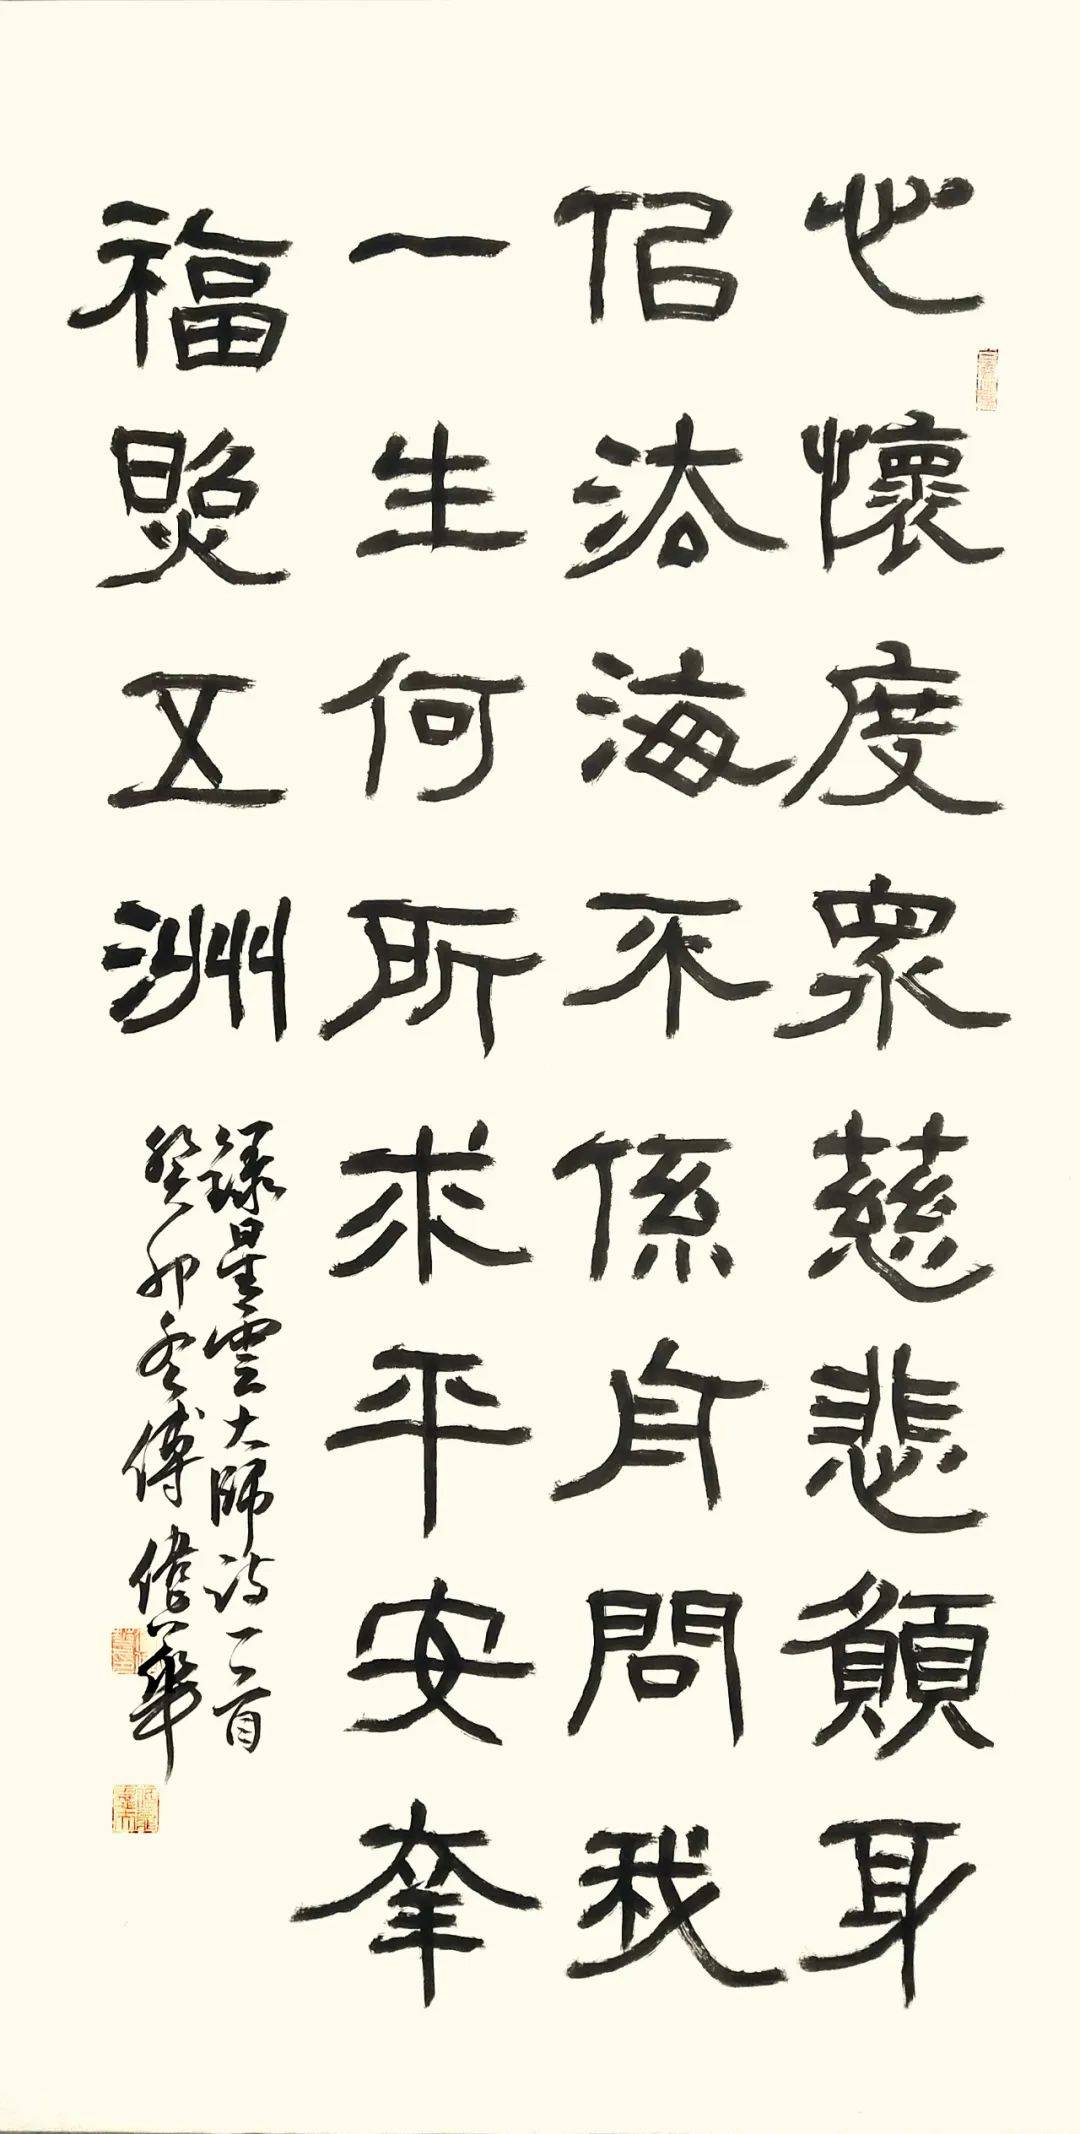 心懷度眾慈悲願身
佀法海不係舟問我
一生何所求平安幸
福照五洲
錄星雲大師诗一首
癸卯冬傅偉華